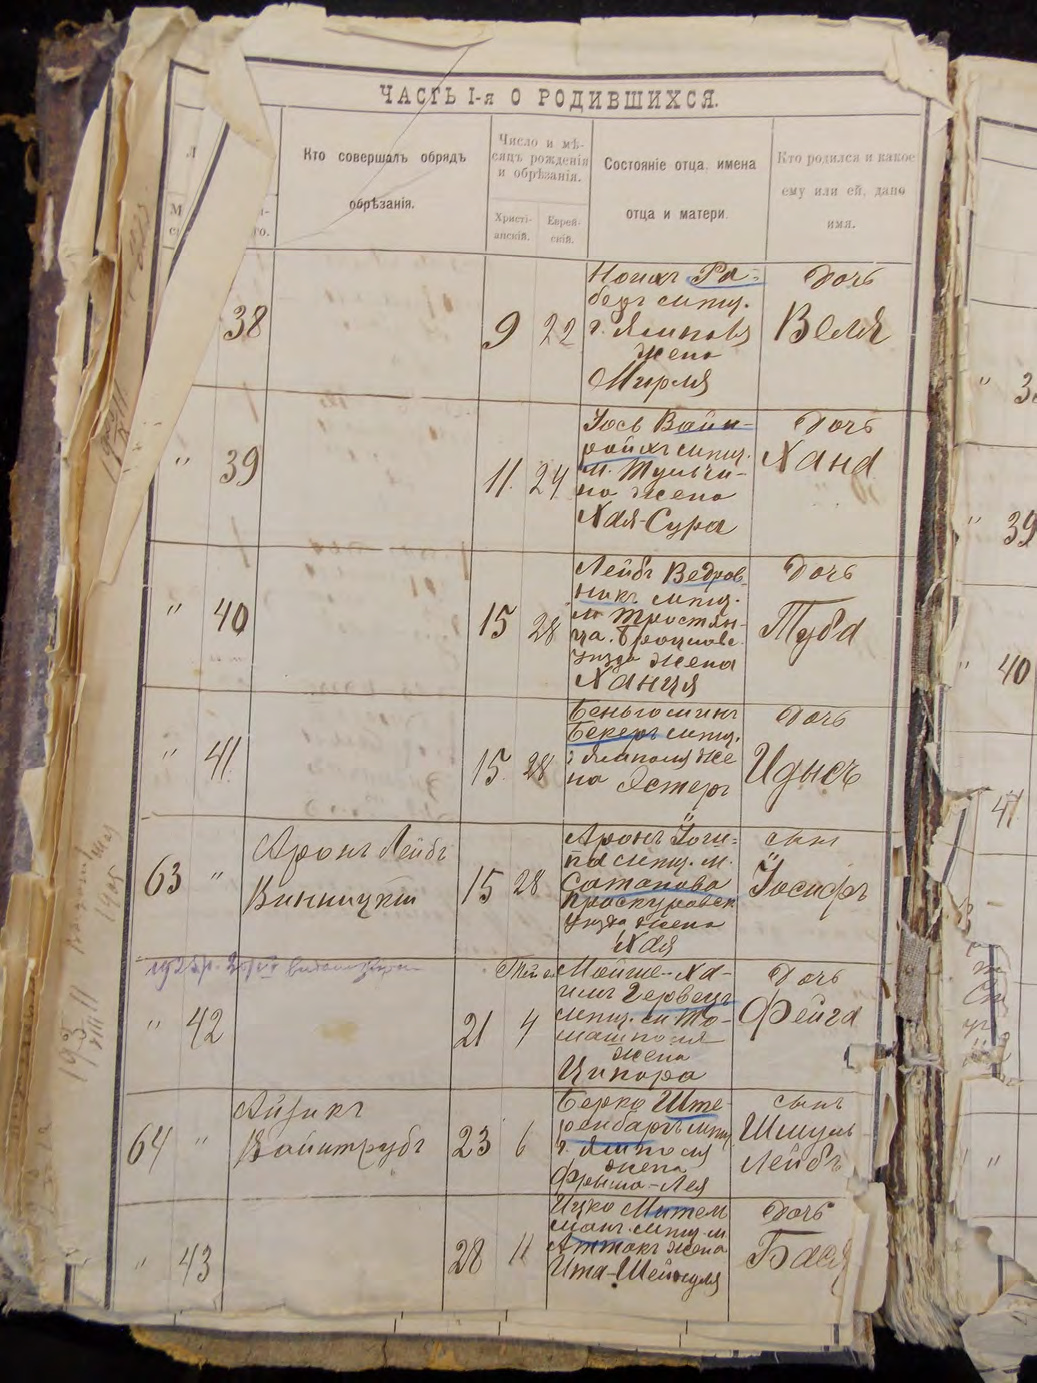 ЧАСТЬ I-я О РОДИВШИХСЯ.
Кто совершалъ обрядъ
обрѣзанія.
Число и мѣ-
сяцъ рожденія
и обрѣзанія.
Христі-
анскій.
Еврей-
скій.
Состояніе отца, имена
отца и матери.
Кто родился и какое
ему или ей, дано
имя.
38
9 22
Ра-
безъ мѣщ.
г. Ямполя
жена
Мирля
Дочь
Веля
" 39
11. 24
Іось Вайн-
райхъ мѣщ.
м. Тульчи-
на жена
Хая-Сура
Дочь
Хана
" 40
15 28
Лейбъ Ведров-
никъ мѣщ.
м. Тростян-
ца. Брацлавс.
уѣзда жена
Ханця
Дочь
Туба
" 41.
15. 28
Беньоминъ
Бекеръ мѣщ.
г. Ямполя же
на Эстеръ
Дочь
Идысь
63 "
Аронъ Лейбъ
Винницкій
15 28
Аронъ
мѣщ. м.
Сатанова
Проскуровск
уѣзда жена
Хая
сынъ
Іосифъ
" 42
21 4
Мойше-Ха-
имъ Червецъ
мѣщ. м. То-
машполя
жена
Ципора
Дочь
Фейга
64 "
Айзикъ
Вайнтрубъ
23 6
Берко Ште-
ренбаргъ мѣщ
г. Ямполя
жена
Фрыма-Лея
сынъ
Шмуль
Лейбъ
" 43
28 11
Ицко Мител
манъ. мѣщ. м.
Атакъ жена
Ита-Шейндля
Дочь
Бася
" 39
40
41
"